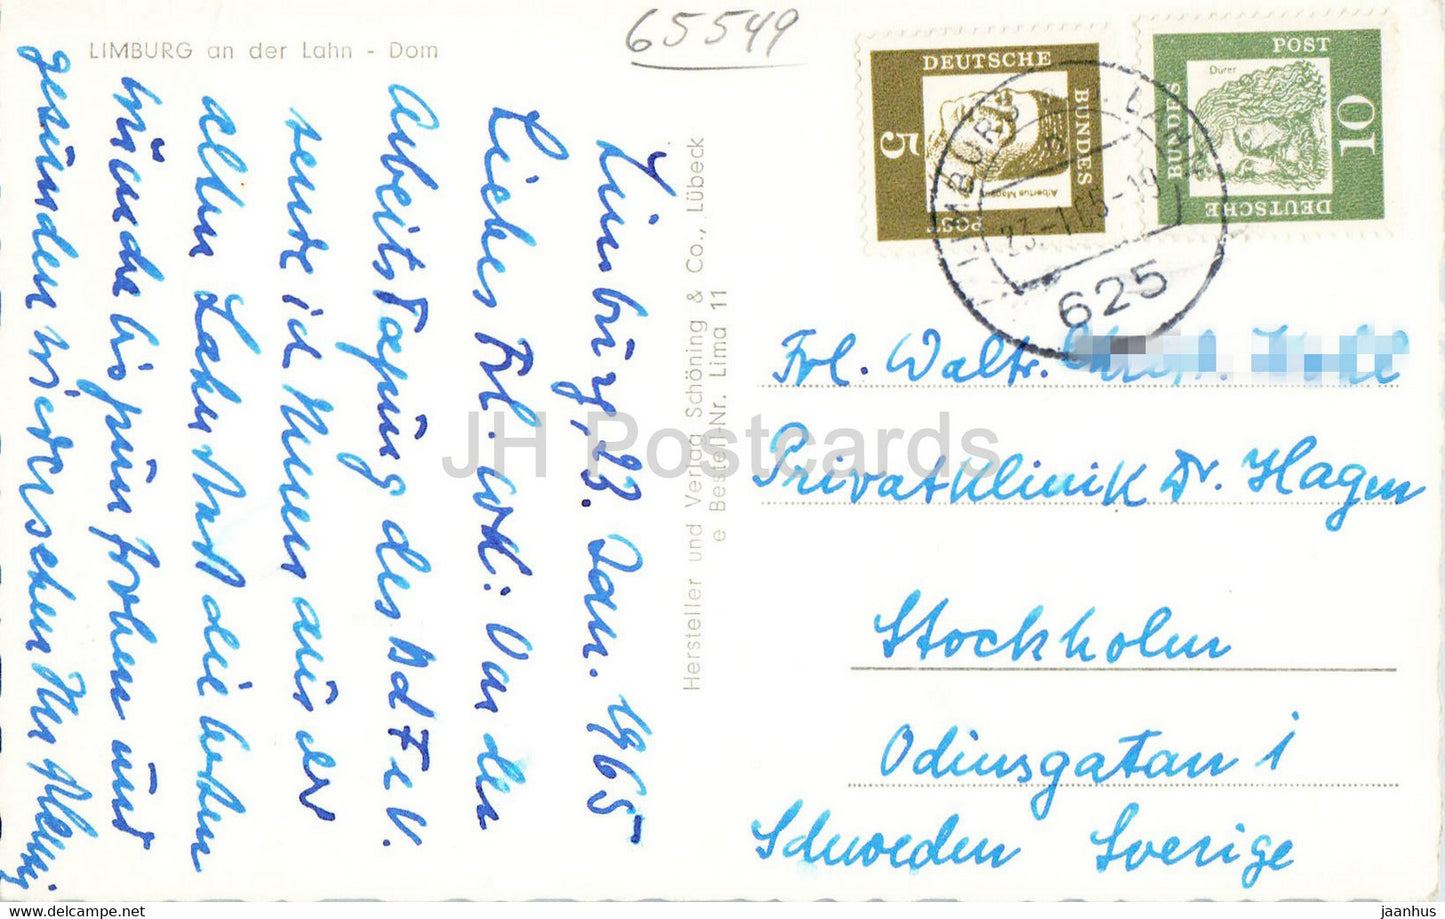 65549
LIMBURG an der Lahn - Dom
Limburg, 23. Jan. 1965
Liebes Frl. Wohl: Von der
Arbeitstagung des BdF e V.
sende ich Ihnen aus der
alten Lahn Stadt die besten
Wünsche bis zum frohen und
gesunden Wiedersehen Ihr
Hersteller und Verlag Schöning & Co., Lübeck
e Bestell-Nr. Lima 11
DEUTSCHE
BUNDES
POST
5
Albertus Magnus
POST
BUNDES
DEUTSCHE
10
Dürer
LIMBURG LAHN
23.-1.65-19
625
Frl. Waltr.
Privatklinik Dr. Hagen
Stockholm
Odinsgatan 1
Schweden Sverige
JH Postcards
www.delcampe.net
jaanhus